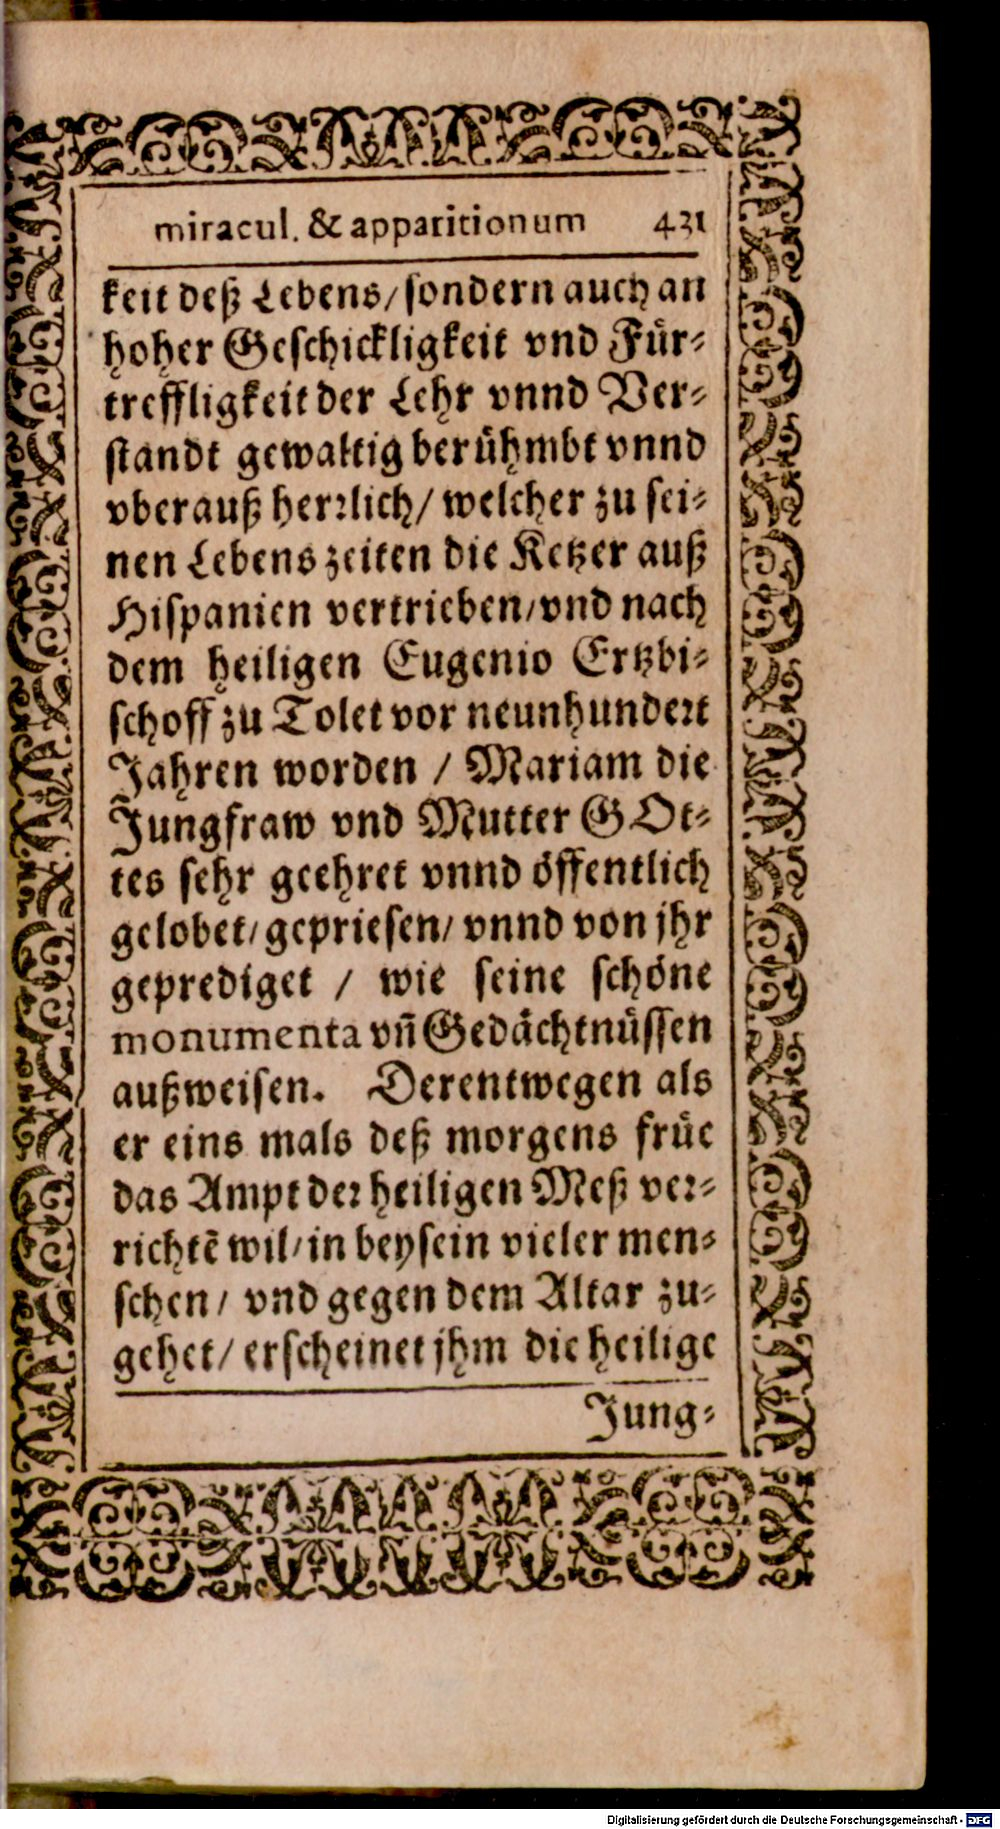 miracul. & apparitionum 431
keit deß Lebens/ sondern auch an
hoher Geschickligkeit vnd Fuͤr-
treffligkeit der Lehr vnnd Ver-
standt gewaltig beruͤhmbt vnnd
vberauß herꝛlich/ welcher zu sei-
nen Lebens zeiten die Ketzer auß
Hispanien vertrieben/ vnd nach
dem heiligen Eugenio Ertzbi-
schoff zu Tolet vor neunhundert
Jahren worden / Mariam die
Jungfraw vnd Mutter GOt-
tes sehr geehret vnnd oͤffentlich
gelobet/ gepriesen/ vnnd von jhr
geprediget / wie seine schoͤne
monumenta vñ Gedaͤchtnuͤssen
außweisen. Derentwegen als
er eins mals deß morgens fruͤe
das Ampt der heiligen Meß ver-
richtẽ wil/ in beysein vieler men-
schen/ vnd gegen dem Altar zu-
gehet/ erscheinet jhm die heilige
Jung-
Digitalisierung gefördert durch die Deutsche Forschungsgemeinschaft - DFG